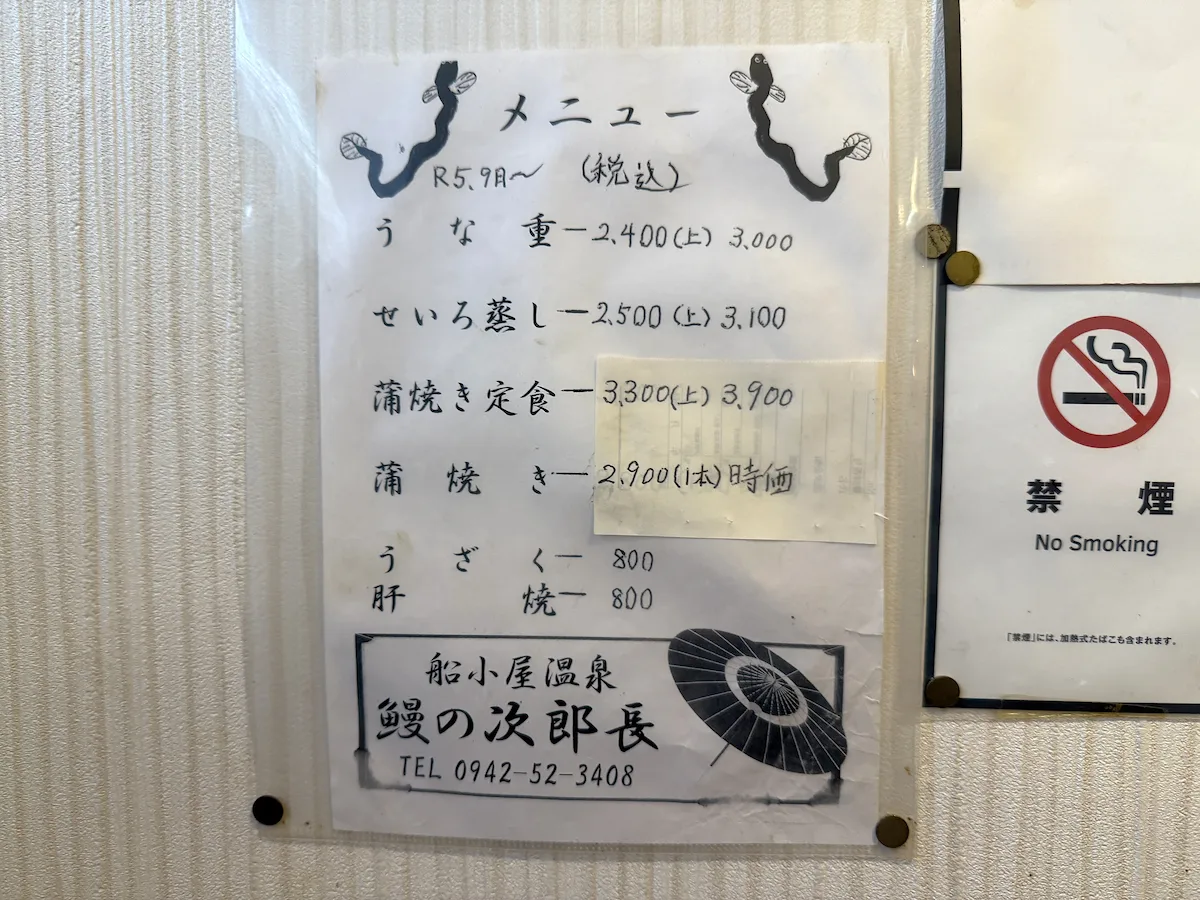 メニュー
R5.9月〜 (税込)
うな重ー2,400(上) 3,000
せいろ蒸しー2,500(上) 3,100
蒲焼き定食ー3,300(上) 3,900
蒲焼きー2,900(1本)時価
うざくー 800
肝焼ー 800
船小屋温泉
鰻の次郎長
TEL 0942-52-3408
禁煙
No Smoking
「禁煙」には、加熱式たばこも含まれます。